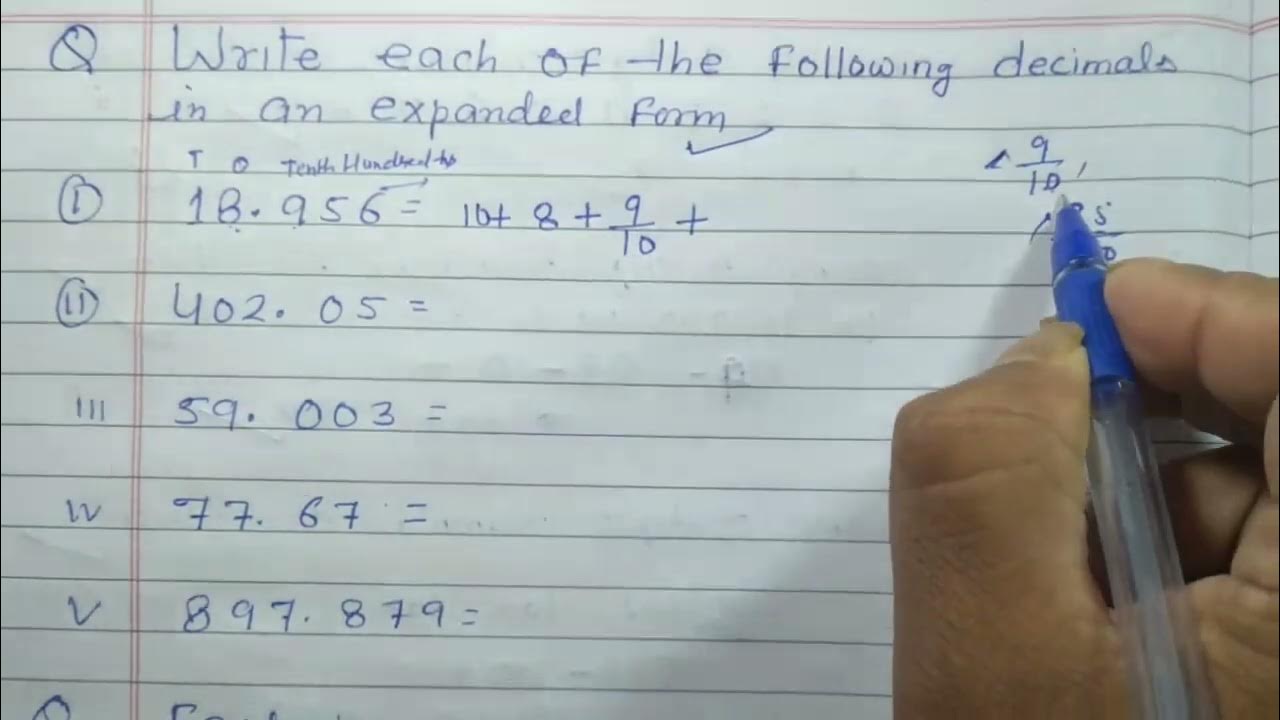 Q Write each of the following decimals
in an expanded form
T O Tenth Hundredths
I 18.956 = 10+ 8 + 9/10 +
9/10,
5
II 402.05 =
III 59.003 =
IV 77.67 =
V 897.879 =